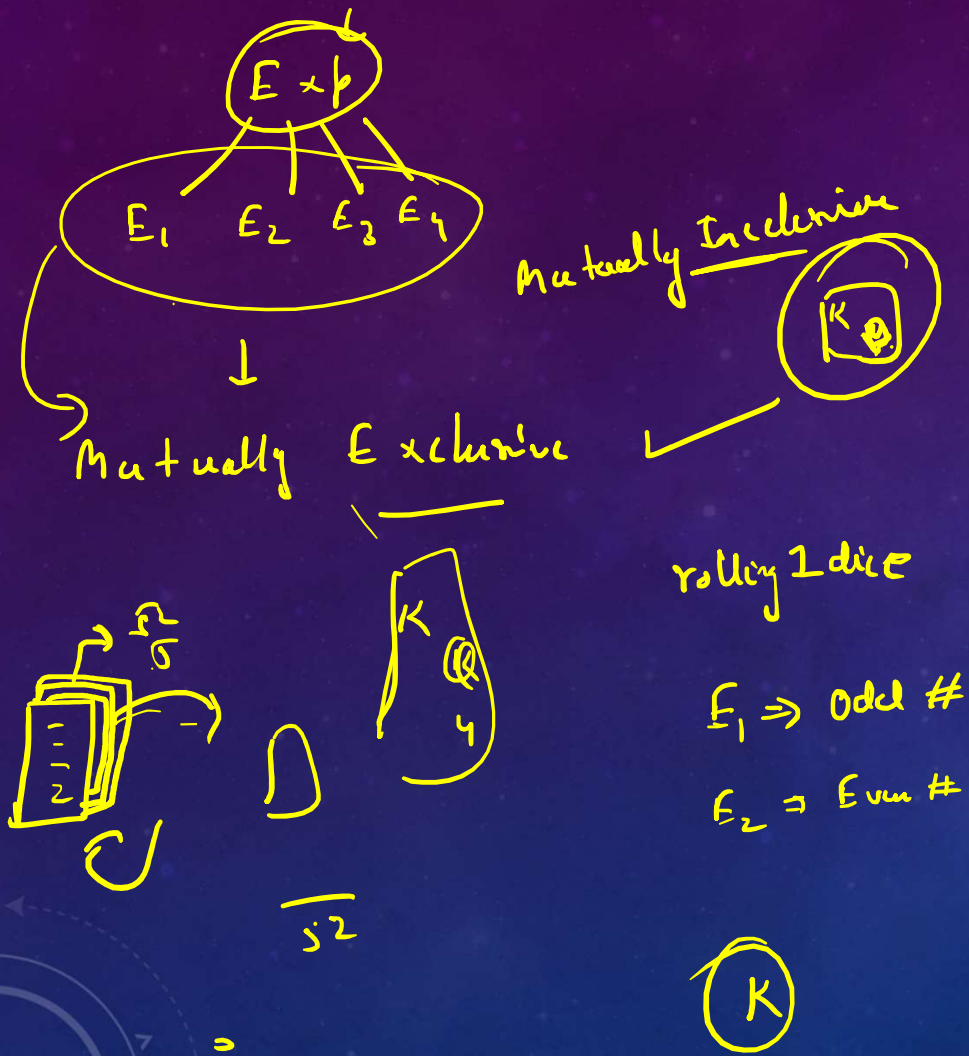 Exp
E1 E2 E3 E4
Mutually Inclusive
K
Mutually Exclusive
rolling 1 dice
K
Q
4
52
E1 ⇒ Odd #
2
E2 ⇒ Even #
52
K
=